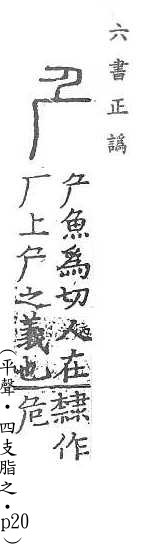 六書正譌
厃
厃魚爲切人在隸作
厂上厃之義也危
（平聲．四支脂之．p20）